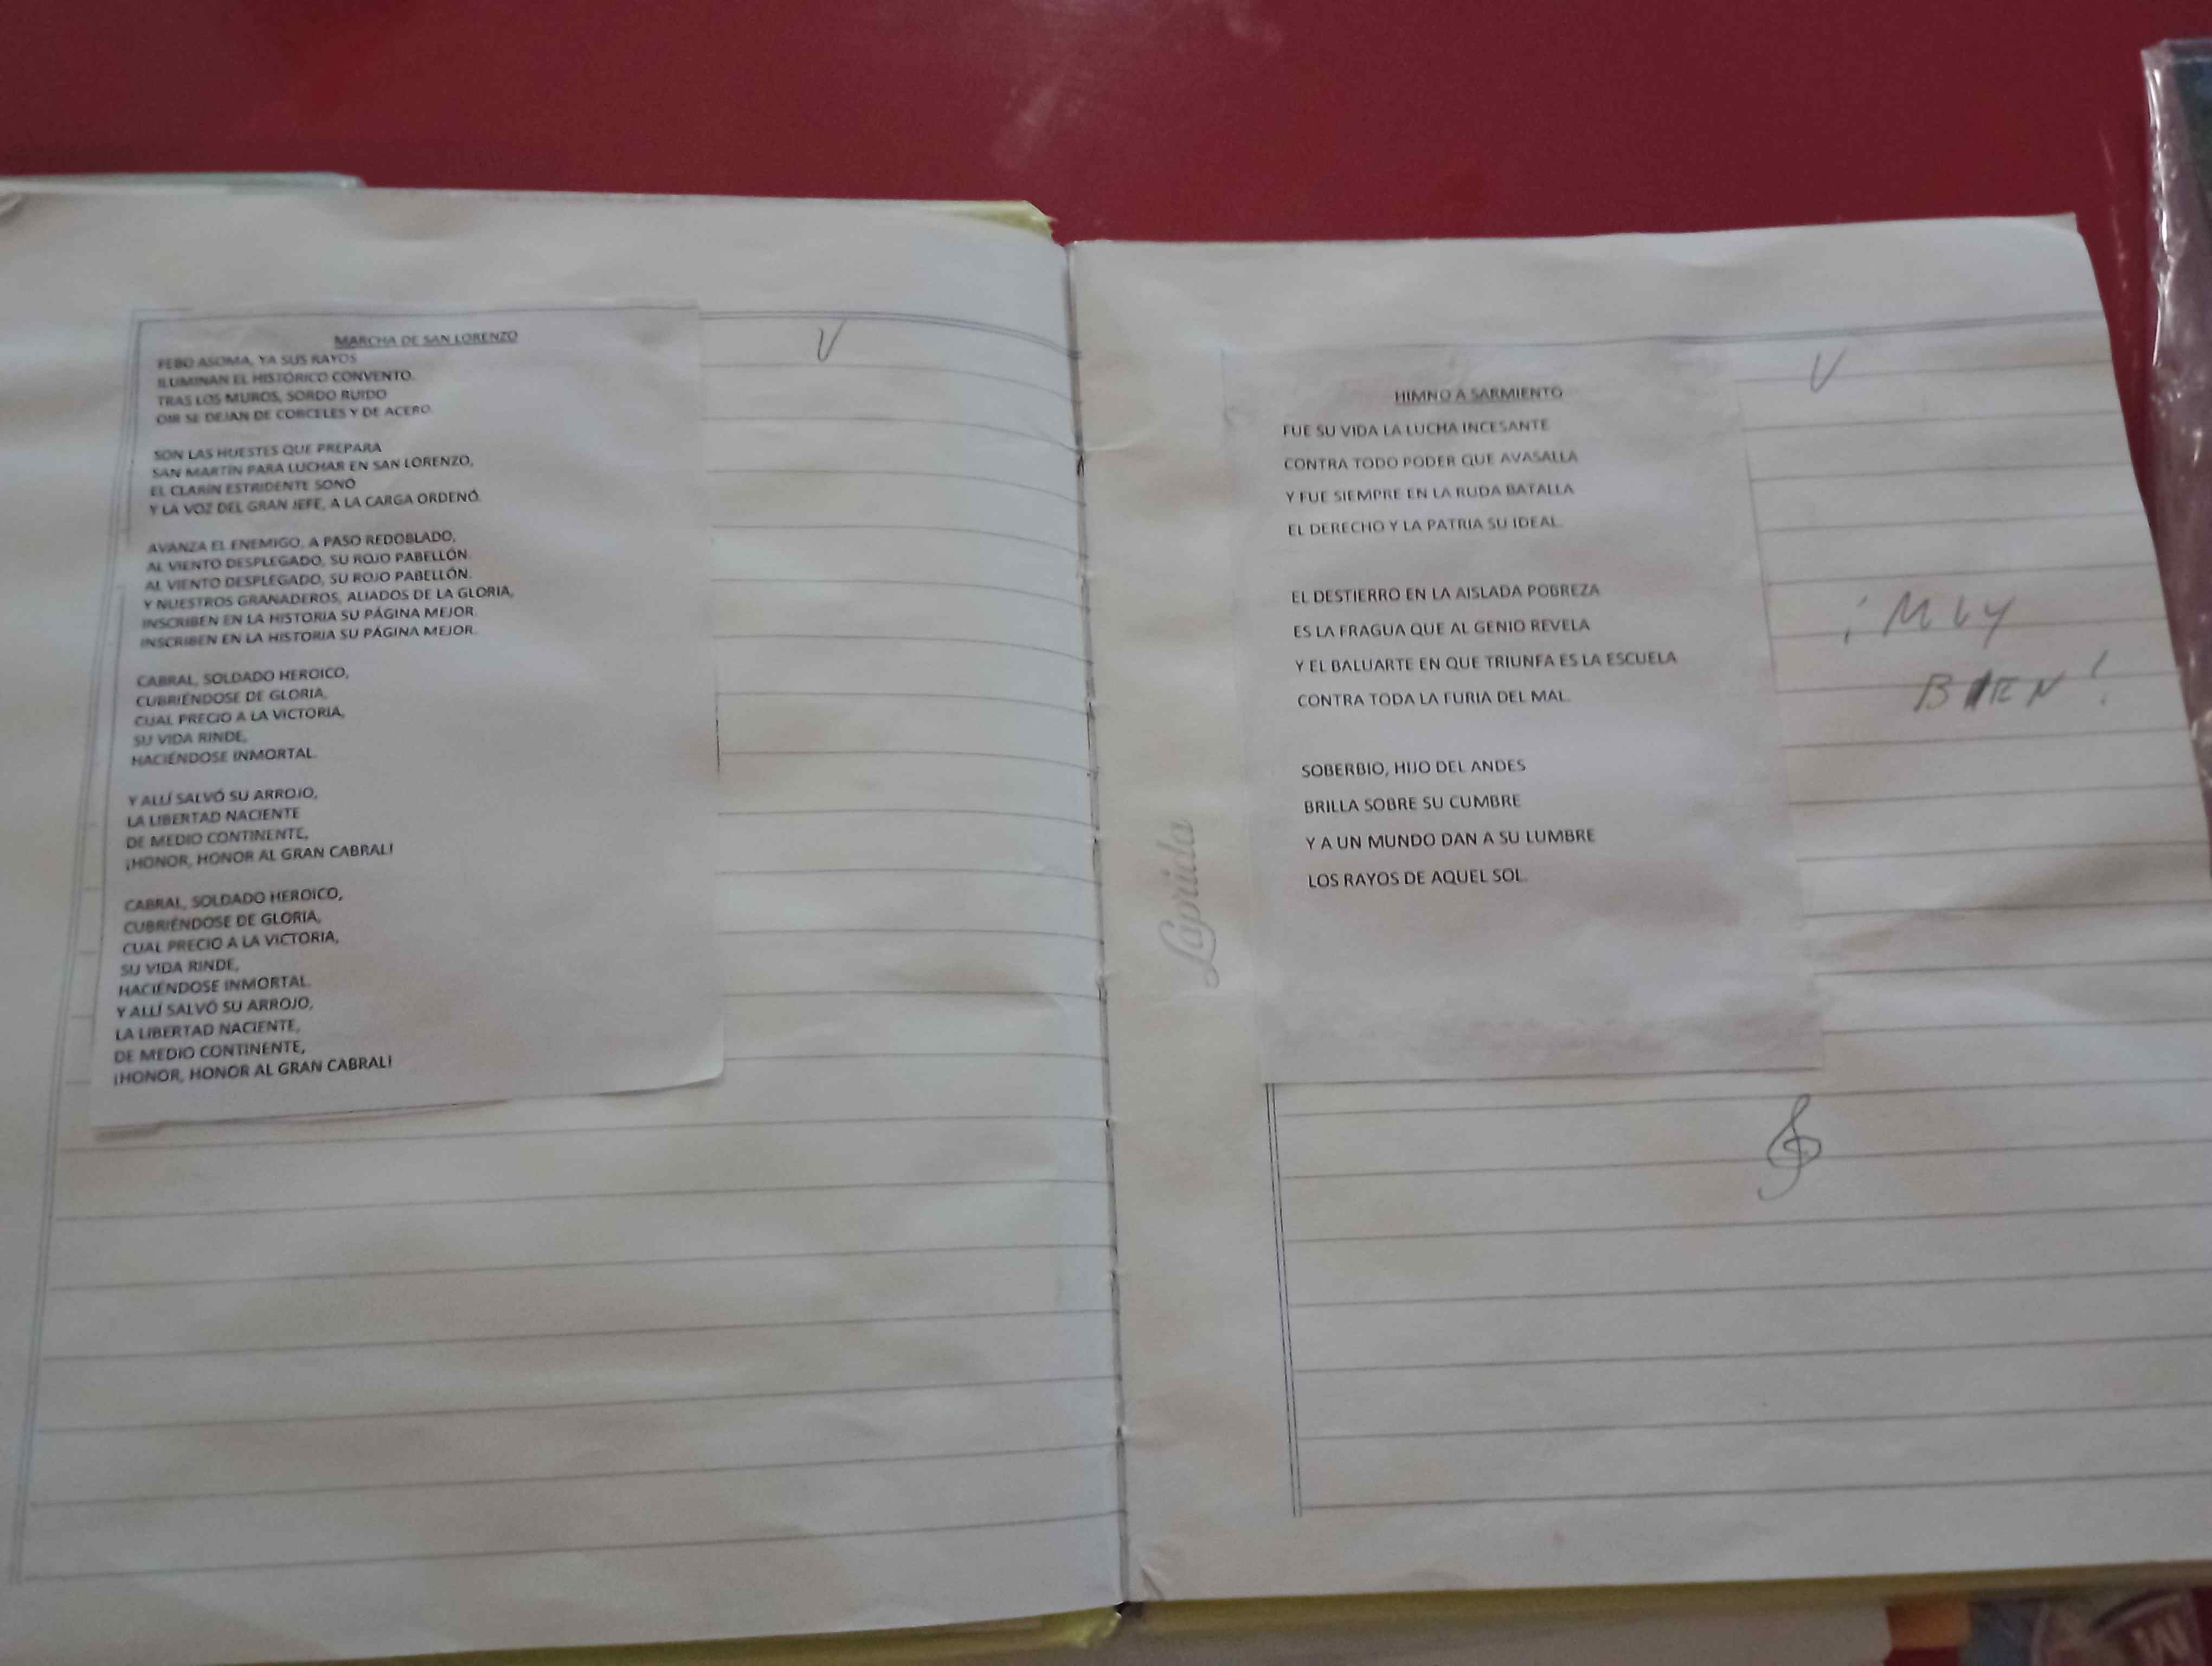 MARCHA DE SAN LORENZO
FEBO ASOMA, YA SUS RAYOS
ILUMINAN EL HISTÓRICO CONVENTO.
TRAS LOS MUROS, SORDO RUIDO
OIR SE DEJAN DE CORCELES Y DE ACERO.
SON LAS HUESTES QUE PREPARA
SAN MARTÍN PARA LUCHAR EN SAN LORENZO,
EL CLARÍN ESTRIDENTE SONÓ
Y LA VOZ DEL GRAN JEFE, A LA CARGA ORDENÓ.
AVANZA EL ENEMIGO, A PASO REDOBLADO,
AL VIENTO DESPLEGADO, SU ROJO PABELLÓN.
AL VIENTO DESPLEGADO, SU ROJO PABELLÓN.
Y NUESTROS GRANADEROS, ALIADOS DE LA GLORIA,
INSCRIBEN EN LA HISTORIA SU PÁGINA MEJOR.
INSCRIBEN EN LA HISTORIA SU PÁGINA MEJOR.
CABRAL, SOLDADO HEROICO,
CUBRIÉNDOSE DE GLORIA,
CUAL PRECIO A LA VICTORIA,
SU VIDA RINDE,
HACIÉNDOSE INMORTAL.
Y ALLÍ SALVÓ SU ARROJO,
LA LIBERTAD NACIENTE
DE MEDIO CONTINENTE,
¡HONOR, HONOR AL GRAN CABRAL!
CABRAL, SOLDADO HEROICO,
CUBRIÉNDOSE DE GLORIA,
CUAL PRECIO A LA VICTORIA,
SU VIDA RINDE,
HACIÉNDOSE INMORTAL.
Y ALLÍ SALVÓ SU ARROJO,
LA LIBERTAD NACIENTE,
DE MEDIO CONTINENTE,
¡HONOR, HONOR AL GRAN CABRAL!
Laprida
HIMNO A SARMIENTO
FUE SU VIDA LA LUCHA INCESANTE
CONTRA TODO PODER QUE AVASALLA
Y FUE SIEMPRE EN LA RUDA BATALLA
EL DERECHO Y LA PATRIA SU IDEAL.
EL DESTIERRO EN LA AISLADA POBREZA
ES LA FRAGUA QUE AL GENIO REVELA
Y EL BALUARTE EN QUE TRIUNFA ES LA ESCUELA
CONTRA TODA LA FURIA DEL MAL.
SOBERBIO, HIJO DEL ANDES
BRILLA SOBRE SU CUMBRE
Y A UN MUNDO DAN A SU LUMBRE
LOS RAYOS DE AQUEL SOL.
¡MUY
BIEN!